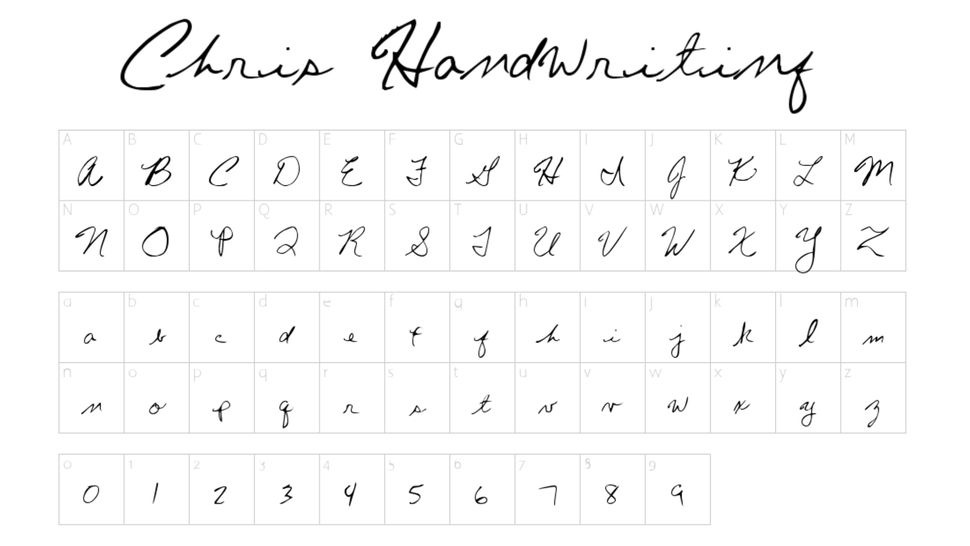 Chris HandWritiing
A B C D E F G H I J K L M
A B C D E F G H I J K L M
N O P Q R S T U V W X Y Z
N O P Q R S T U V W X Y Z
a b c d e f g h i j k l m
a b c d e f g h i j k l m
n o p q r s t u v w x y z
n o p q r s t u v w x y z
0 1 2 3 4 5 6 7 8 9
0 1 2 3 4 5 6 7 8 9